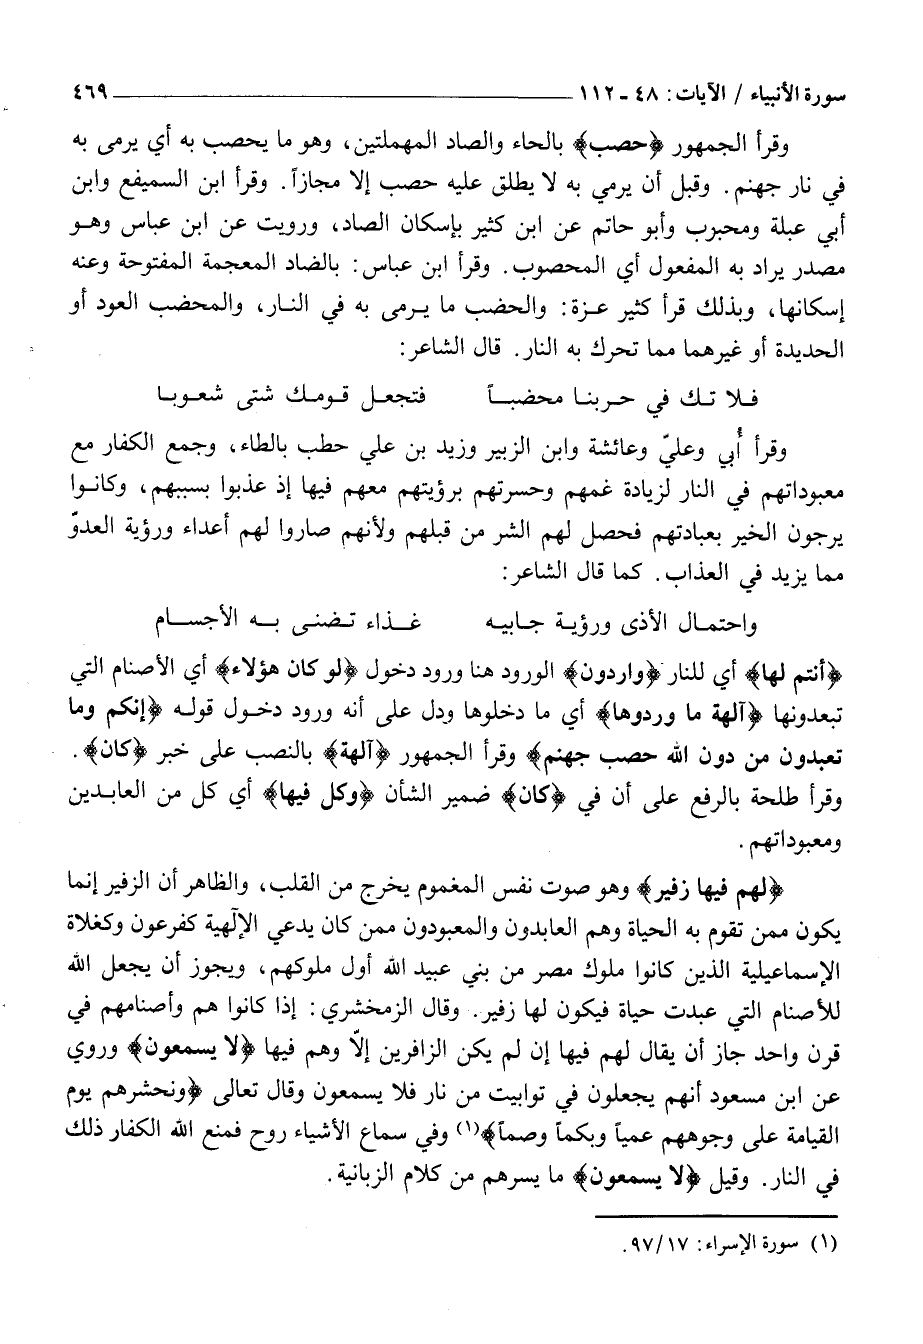 سورة الأنبياء / الآيات: ٤٨ - ١١٢ ٤٦٩
وقرأ الجمهور ﴿حصب﴾ بالحاء والصاد المهملتين، وهو ما يحصب به أي يرمى به
في نار جهنم. وقبل أن يرمي به لا يطلق عليه حصب إلا مجازاً. وقرأ ابن السميفع وابن
أبي عبلة ومحبرب وأبو حاتم عن ابن كثير بإسكان الصاد، ورويت عن ابن عباس وهو
مصدر يراد به المفعول أي المحصوب. وقرأ ابن عباس: بالضاد المعجمة المفتوحة وعنه
إسكانها، وبذلك قرأ كثير عزة: والحضب ما يرمى به في النار، والمحضب العود أو
الحديدة أو غيرهما مما تحرك به النار. قال الشاعر:
فلا تك في حربنا محضباً فتجعل قومك شتى شعوبا
وقرأ أُبي وعليّ وعائشة وابن الزبير وزيد بن علي حطب بالطاء، وجمع الكفار مع
معبوداتهم في النار لزيادة غمهم وحسرتهم برؤيتهم معهم فيها إذ عذبوا بسببهم، وكانوا
يرجون الخير بعبادتهم فحصل لهم الشر من قبلهم ولأنهم صاروا لهم أعداء ورؤية العدوّ
مما يزيد في العذاب. كما قال الشاعر:
واحتمال الأذى ورؤية جابيه غذاء تضنى به الأجسام
﴿أنتم لها﴾ أي للنار ﴿واردون﴾ الورود هنا ورود دخول ﴿لو كان هؤلاء﴾ أي الأصنام التي
تبعدونها ﴿آلهة ما وردوها﴾ أي ما دخلوها ودل على أنه ورود دخول قوله ﴿إنكم وما
تعبدون من دون الله حصب جهنم﴾ وقرأ الجمهور ﴿آلهة﴾ بالنصب على خبر ﴿كان﴾.
وقرأ طلحة بالرفع على أن في ﴿كان﴾ ضمير الشأن ﴿وكل فيها﴾ أي كل من العابدين
ومعبوداتهم.
﴿لهم فيها زفير﴾ وهو صوت نفس المغموم يخرج من القلب، والظاهر أن الزفير إنما
يكون ممن تقوم به الحياة وهم العابدون والمعبودون ممن كان يدعي الإلٓهية كفرعون وكغلاة
الإسماعيلية الذين كانوا ملوك مصر من بني عبيد الله أول ملوكهم، ويجوز أن يجعل الله
للأصنام التي عبدت حياة فيكون لها زفير. وقال الزمخشري: إذا كانوا هم وأصنامهم في
قرن واحد جاز أن يقال لهم فيها إن لم يكن الزافرين إلاّ وهم فيها ﴿لا يسمعون﴾ وروي
عن ابن مسعود أنهم يجعلون في توابيت من نار فلا يسمعون وقال تعالى ﴿ونحشرهم يوم
القيامة على وجوههم عمياً وبكماً وصماً﴾(١) وفي سماع الأشياء روح فمنع الله الكفار ذلك
في النار. وقيل ﴿لا يسمعون﴾ ما يسرهم من كلام الزبانية.
(١) سورة الإسراء: ٩٧/١٧.